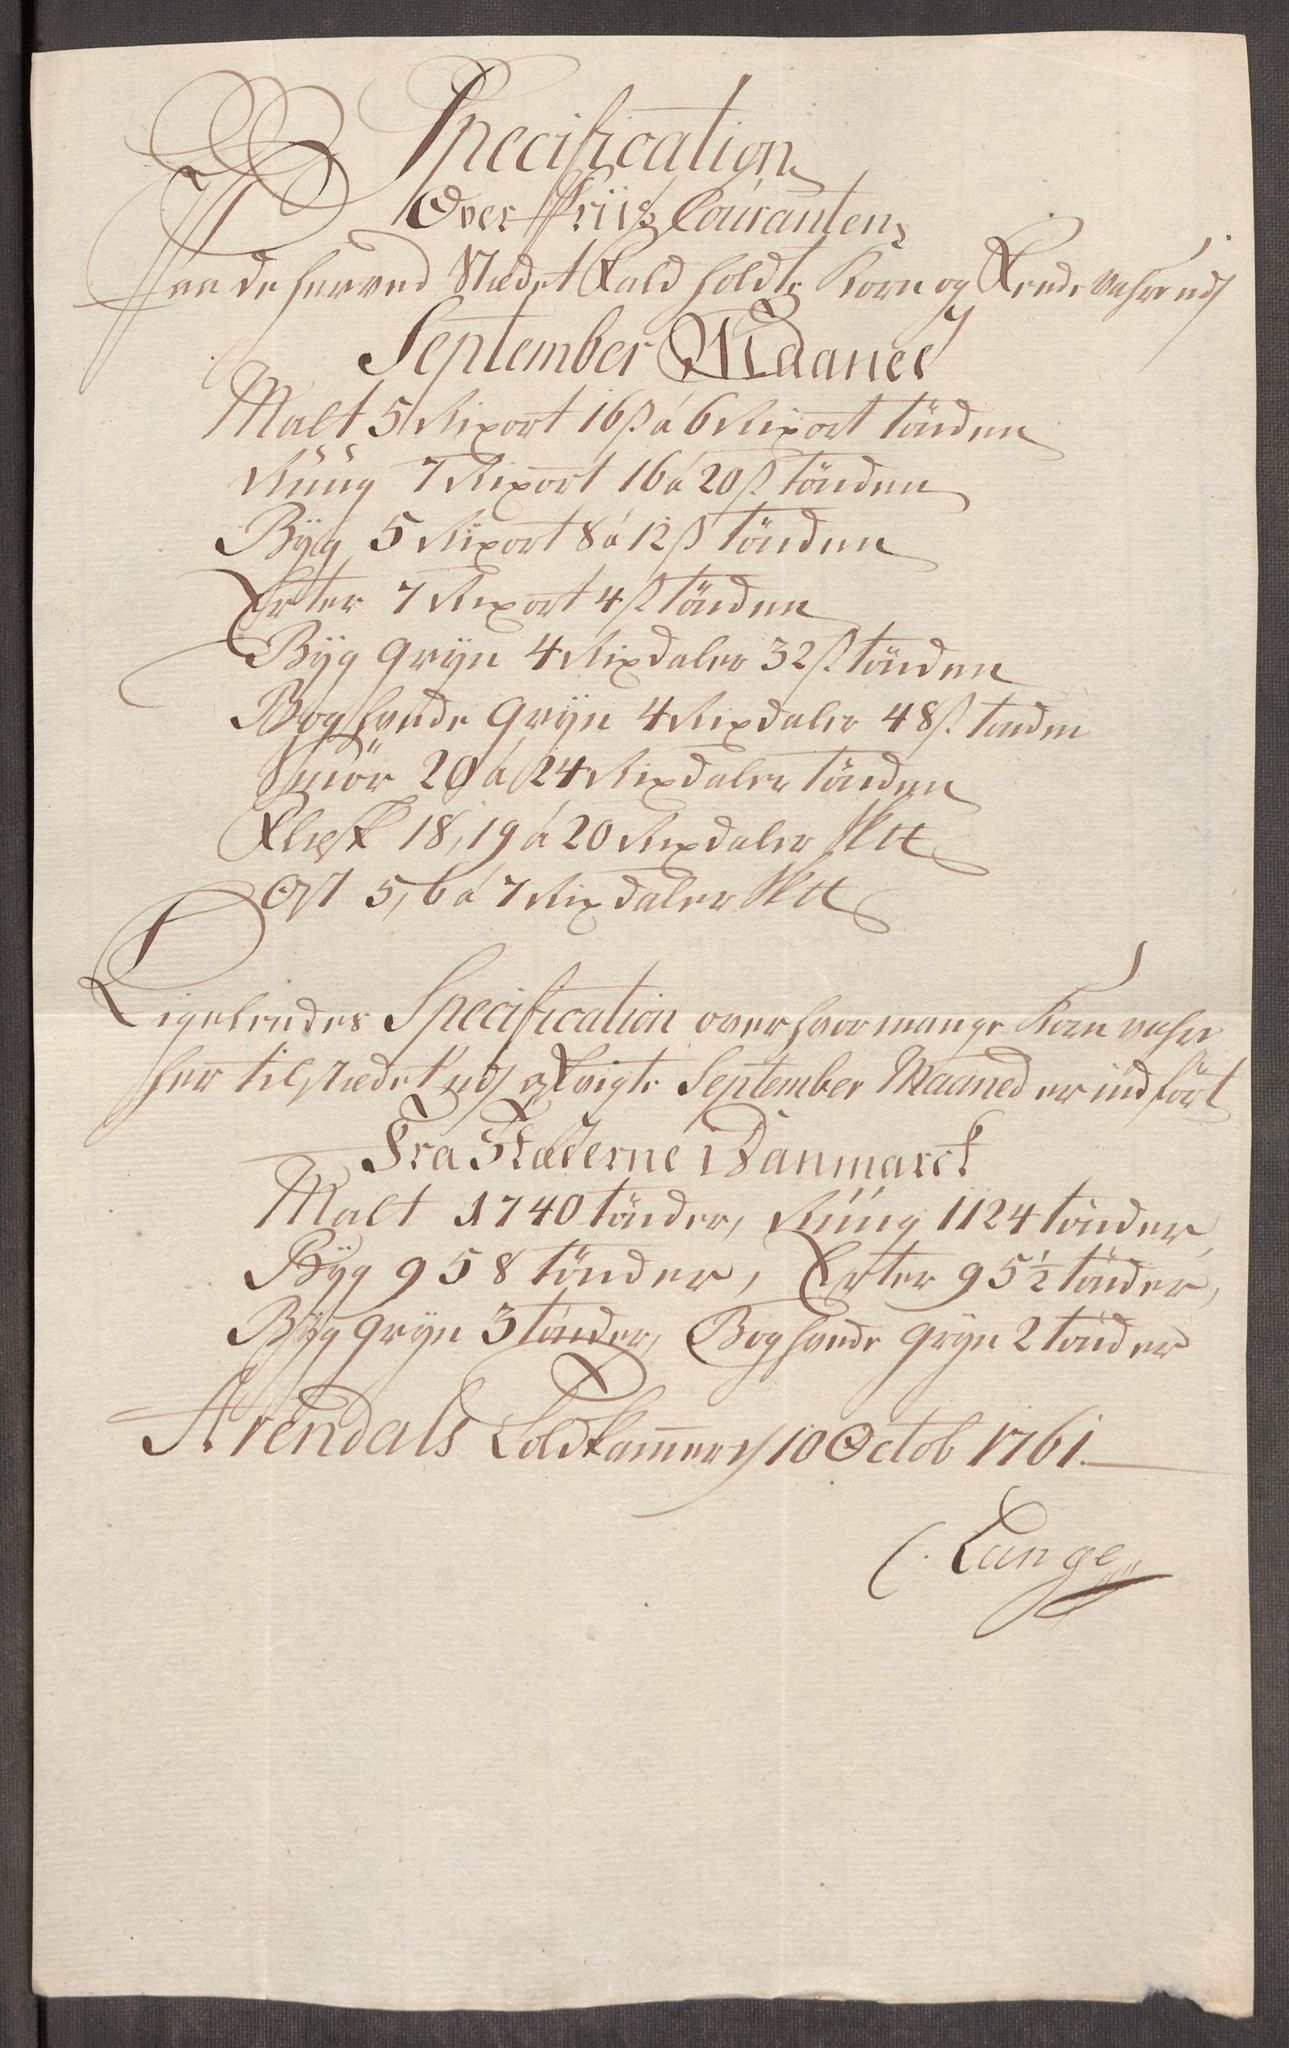 Specification
Over Priis Couranten
Paa de herved Stædet Fald holdte Korn og Feede vahre udj
September Maaned
Malt 5 Rixort 16 ß a 6 Rixort tönden
Rüüg 7 Rixort 16 a 20 ß tönden
Byg 5 Rixort 8 a 12 ß tönden
Erter 7 Rixort 4 ß tönden
Byg Gryn 4 Rixdaler 32 ß tönden
Boghvede Gryn 4 Rixdaler 48 ß tönden
Smör 20 a 24 Rixdaler tönden
Flesk 18, 19 a 20 Rixdaler Sk℔
Ost 5, 6 a 7 Rixdaler Sk℔
Ligeleedes Specification over hvor mange Korn vahre
her til stædet udj afvigte September Maaned er indfört
Fra Stæderne i Danmarck
Malt 1740 tönder, Rüüg 1124 tönder,
Byg 958 tönder, Erter 95½ tönder,
Byg Gryn 3 tönder, Boghvede Gryn 2 tönder
Arendals Toldkammer d 10 Octob 1761.
C. Lange